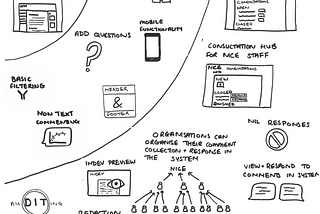 CONSULTATIONS
OPEN
CLOSED
MOBILE
FUNCTIONALITY
ADD QUESTIONS
?
CONSULTATION HUB
FOR NICE STAFF
NICE CONSULTATIONS
NEW
CLOSED
ANSWERED
BASIC
FILTERING
HEADER
&
FOOTER
NON TEXT
COMMENTING
NIL RESPONSES
ORGANISATIONS CAN
ORGANISE THEIR COMMENT
COLLECTION + RESPONSE IN
THE SYSTEM
NICE
INDEV PREVIEW
INDEV
VIEW + RESPOND TO
COMMENTS IN SYSTEM
DIT
REDACTION